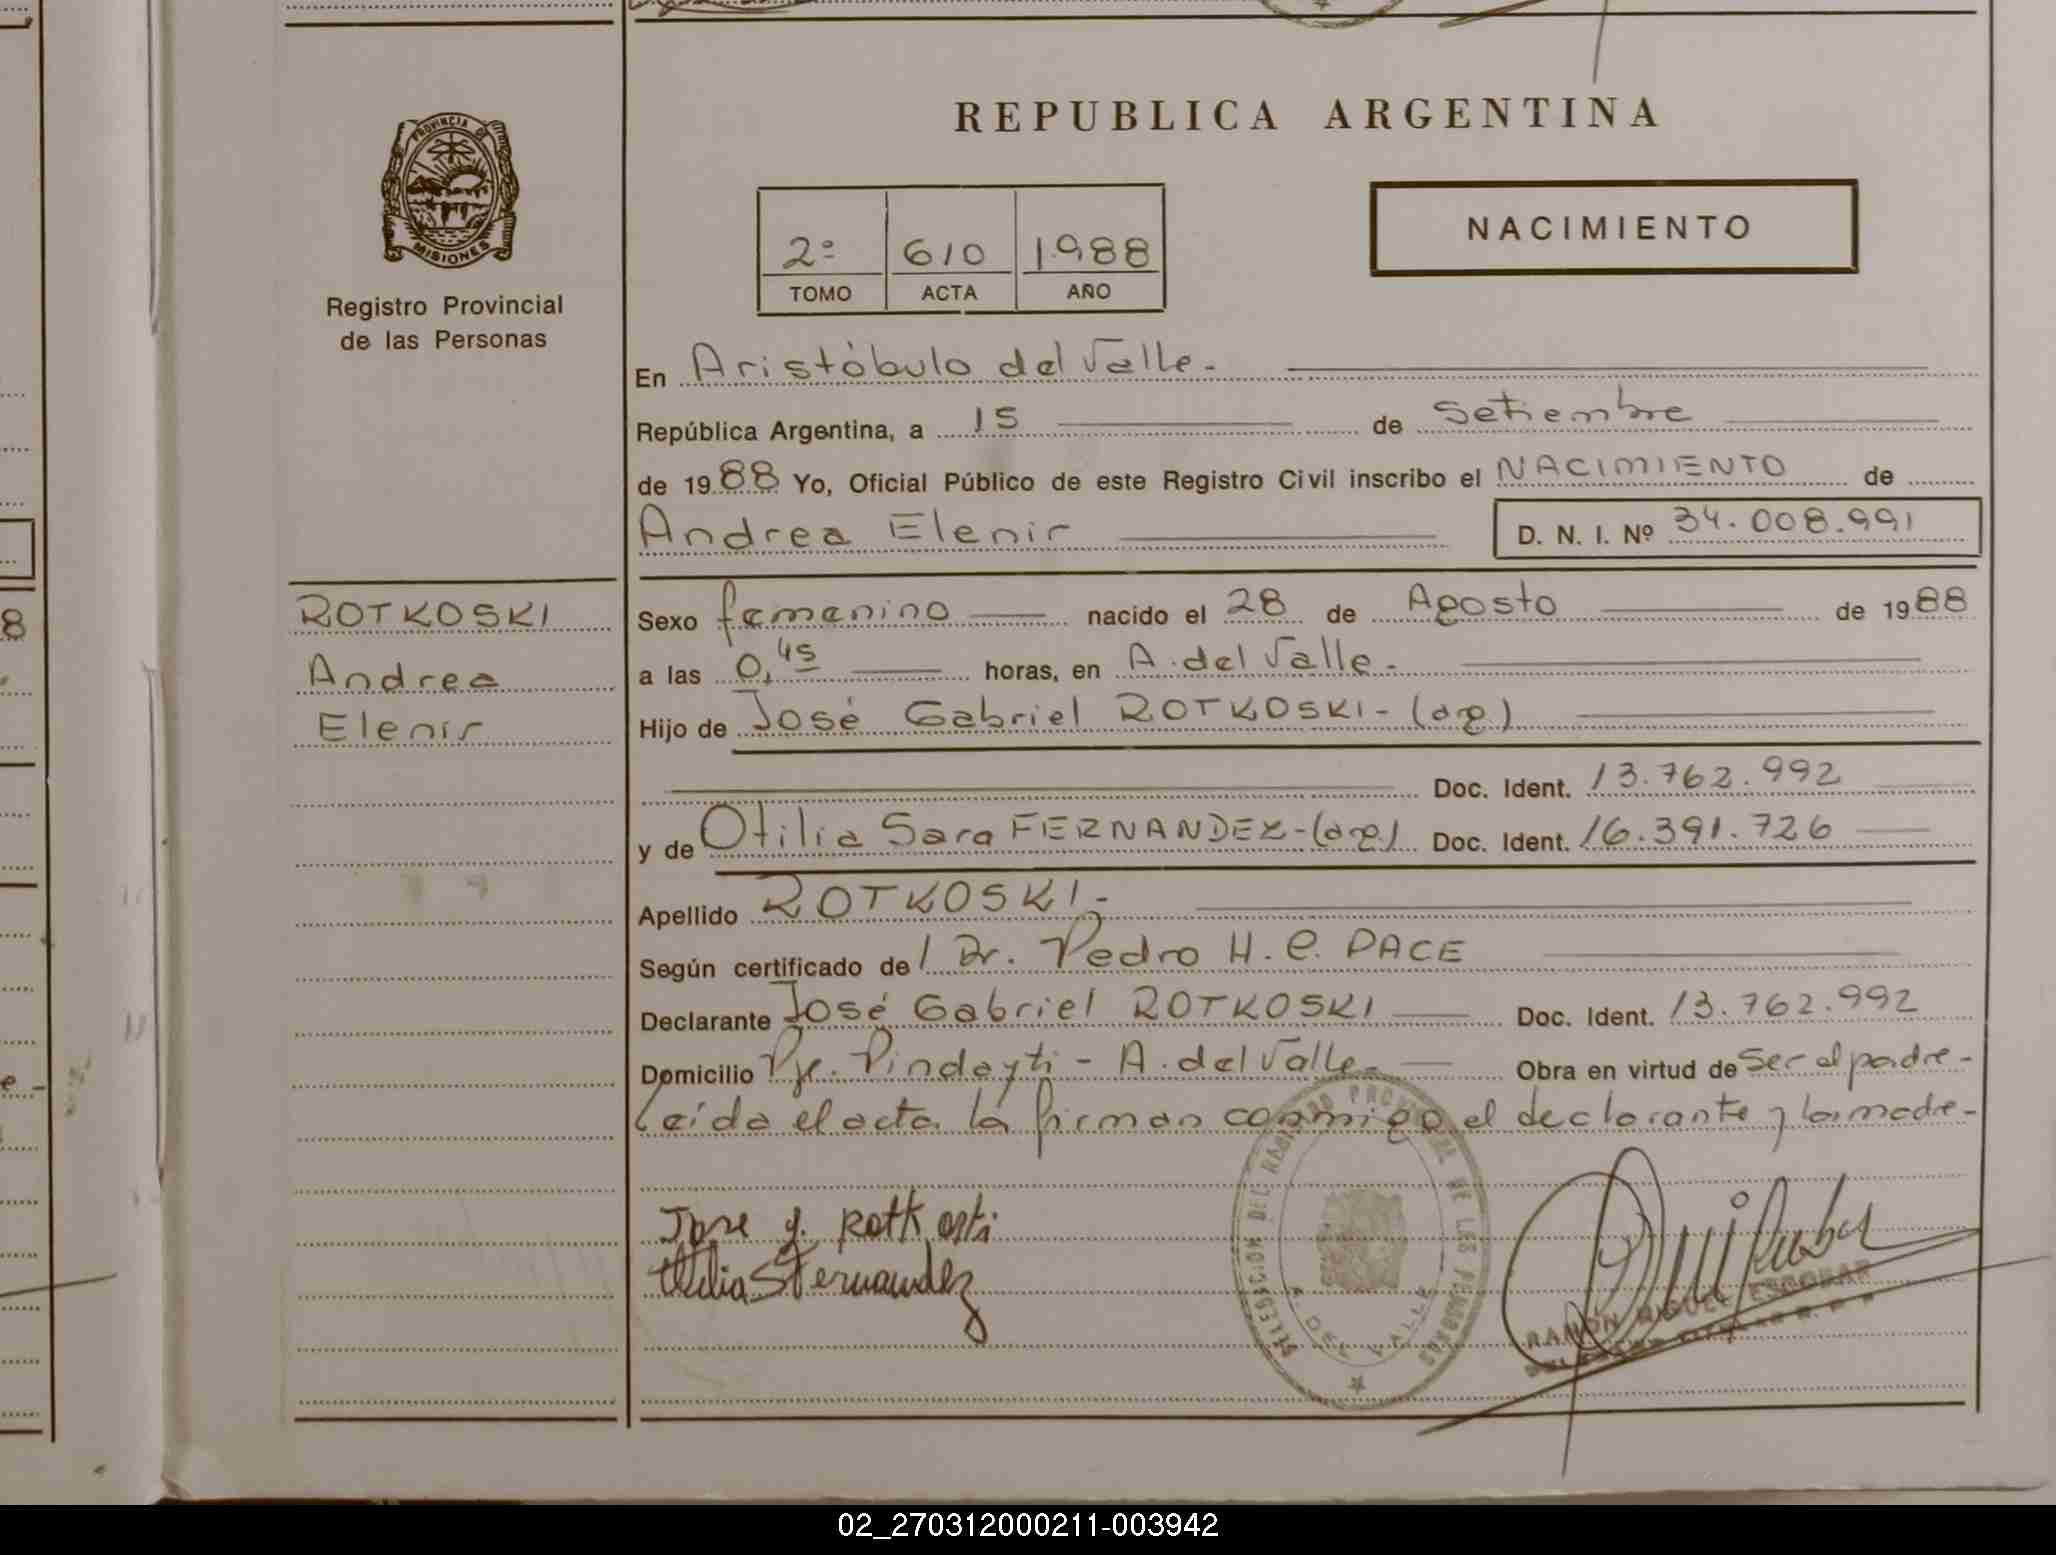 REPUBLICA ARGENTINA
PROVINCIA DE
MISIONES
Registro Provincial
de las Personas
NACIMIENTO
2º 610 1988
TOMO ACTA AÑO
En Aristóbulo del Valle.
República Argentina, a 15 de Setiembre
de 1988 Yo, Oficial Público de este Registro Civil inscribo el NACIMIENTO de
Andrea Elenir D. N. I. Nº 34.008.991
ROTKOSKI
Andrea
Elenir
Sexo femenino nacido el 28 de Agosto de 1988
a las 0,45 horas, en A. del Valle.
Hijo de José Gabriel ROTKOSKI - (arg)
Doc. Ident. 13.762.992
y de Otilia Sara FERNANDEZ - (arg.) Doc. Ident. 16.391.726
Apellido ROTKOSKI -
Según certificado de / Dr. Pedro H. C. PACE
Declarante José Gabriel ROTKOSKI Doc. Ident. 13.762.992
Domicilio Pje. Pindayti - A. del Valle. Obra en virtud de ser el padre -
Leída el acta la firman conmigo el declarante y la madre -
Jose g. Rotkoski
Otilia S Fernandez
DEL REGISTRO PROVINCIAL DE LAS PERSONAS
A. DEL VALLE
RAMÓN MIGUEL ESCOBAR
8
02_270312000211-003942